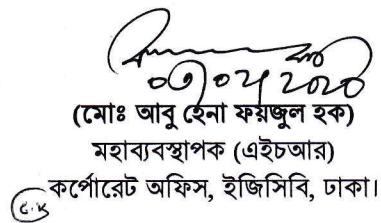 ০৩/০৫/২০২০
(মোঃ আবু হেনা ফয়জুল হক)
মহাব্যবস্থাপক (এইচআর)
কর্পোরেট অফিস, ইজিসিবি, ঢাকা।